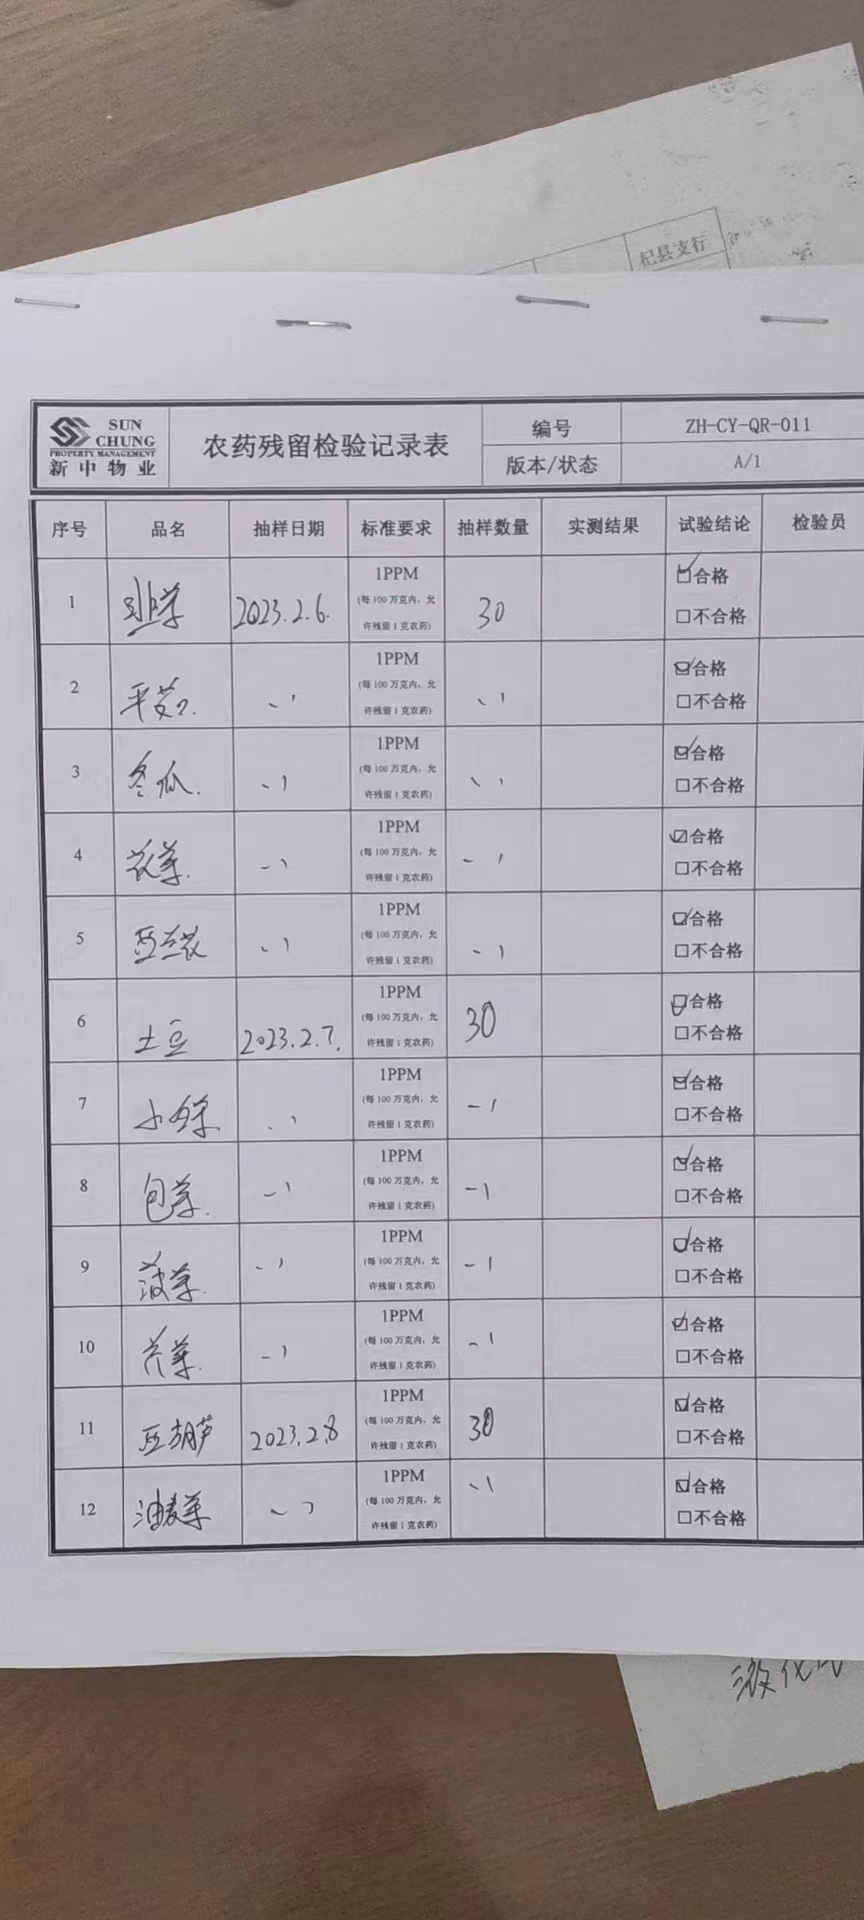 杞县支行
SUN
CHUNG
PROPERTY MANAGEMENT
新中物业
农药残留检验记录表
编号
ZH-CY-QR-011
版本/状态
A/1
序号 品名 抽样日期 标准要求 抽样数量 实测结果 试验结论 检验员
1 韭菜 2023.2.6. 1PPM 30 合格
(每100万克内，允
许残留1克农药) 不合格
2 平菇 1PPM 合格
(每100万克内，允
许残留1克农药) 不合格
3 冬瓜. 1PPM 合格
(每100万克内，允
许残留1克农药) 不合格
4 花菜. 1PPM 合格
(每100万克内，允
许残留1克农药) 不合格
5 西兰花 1PPM 合格
(每100万克内，允
许残留1克农药) 不合格
6 土豆 2023.2.7. 1PPM 30 合格
(每100万克内，允
许残留1克农药) 不合格
7 1PPM 合格
(每100万克内，允
许残留1克农药) 不合格
8 包菜. 1PPM 合格
(每100万克内，允
许残留1克农药) 不合格
9 菠菜. 1PPM 合格
(每100万克内，允
许残留1克农药) 不合格
10 芹菜. 1PPM 合格
(每100万克内，允
许残留1克农药) 不合格
11 西葫芦 2023.2.8 1PPM 30 合格
(每100万克内，允
许残留1克农药) 不合格
12 油麦菜 1PPM 合格
(每100万克内，允
许残留1克农药) 不合格